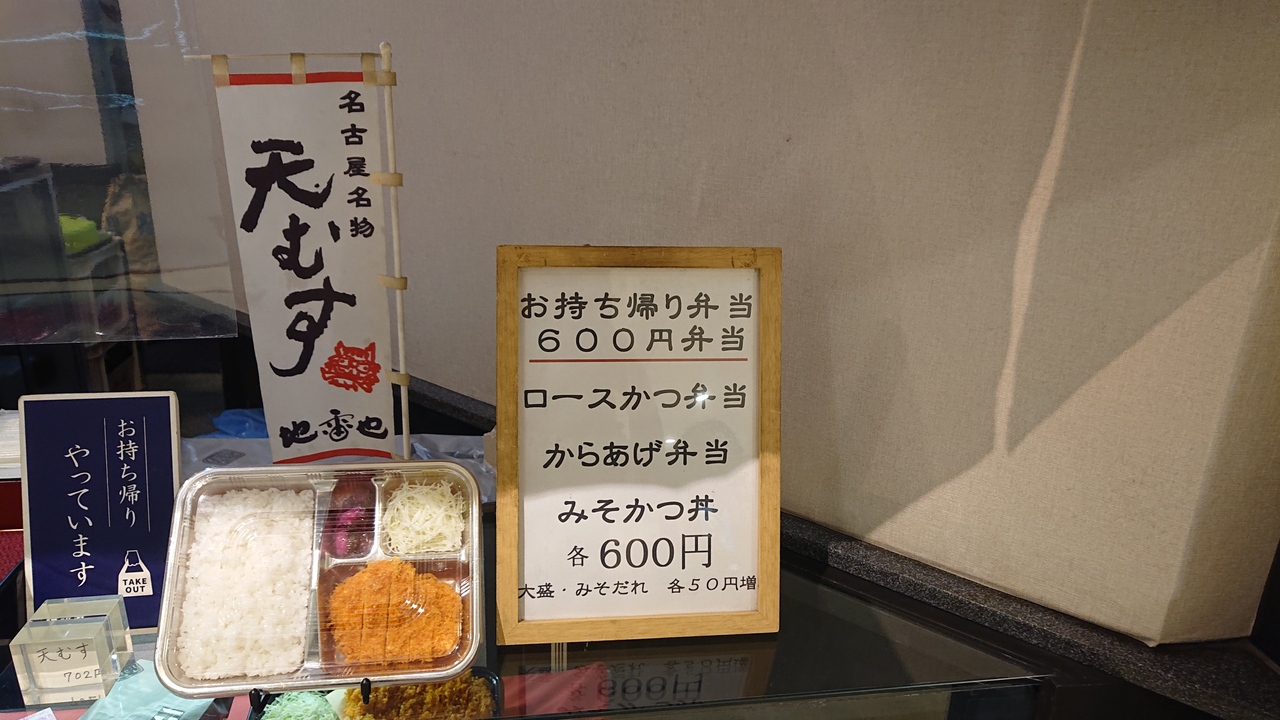 名古屋名物
天むす
地雷也
お持ち帰り
やっています
TAKE
OUT
天むす
702円
お持ち帰り弁当
600円弁当
ロースかつ弁当
からあげ弁当
みそかつ丼
各600円
大盛・みそだれ　各50円増